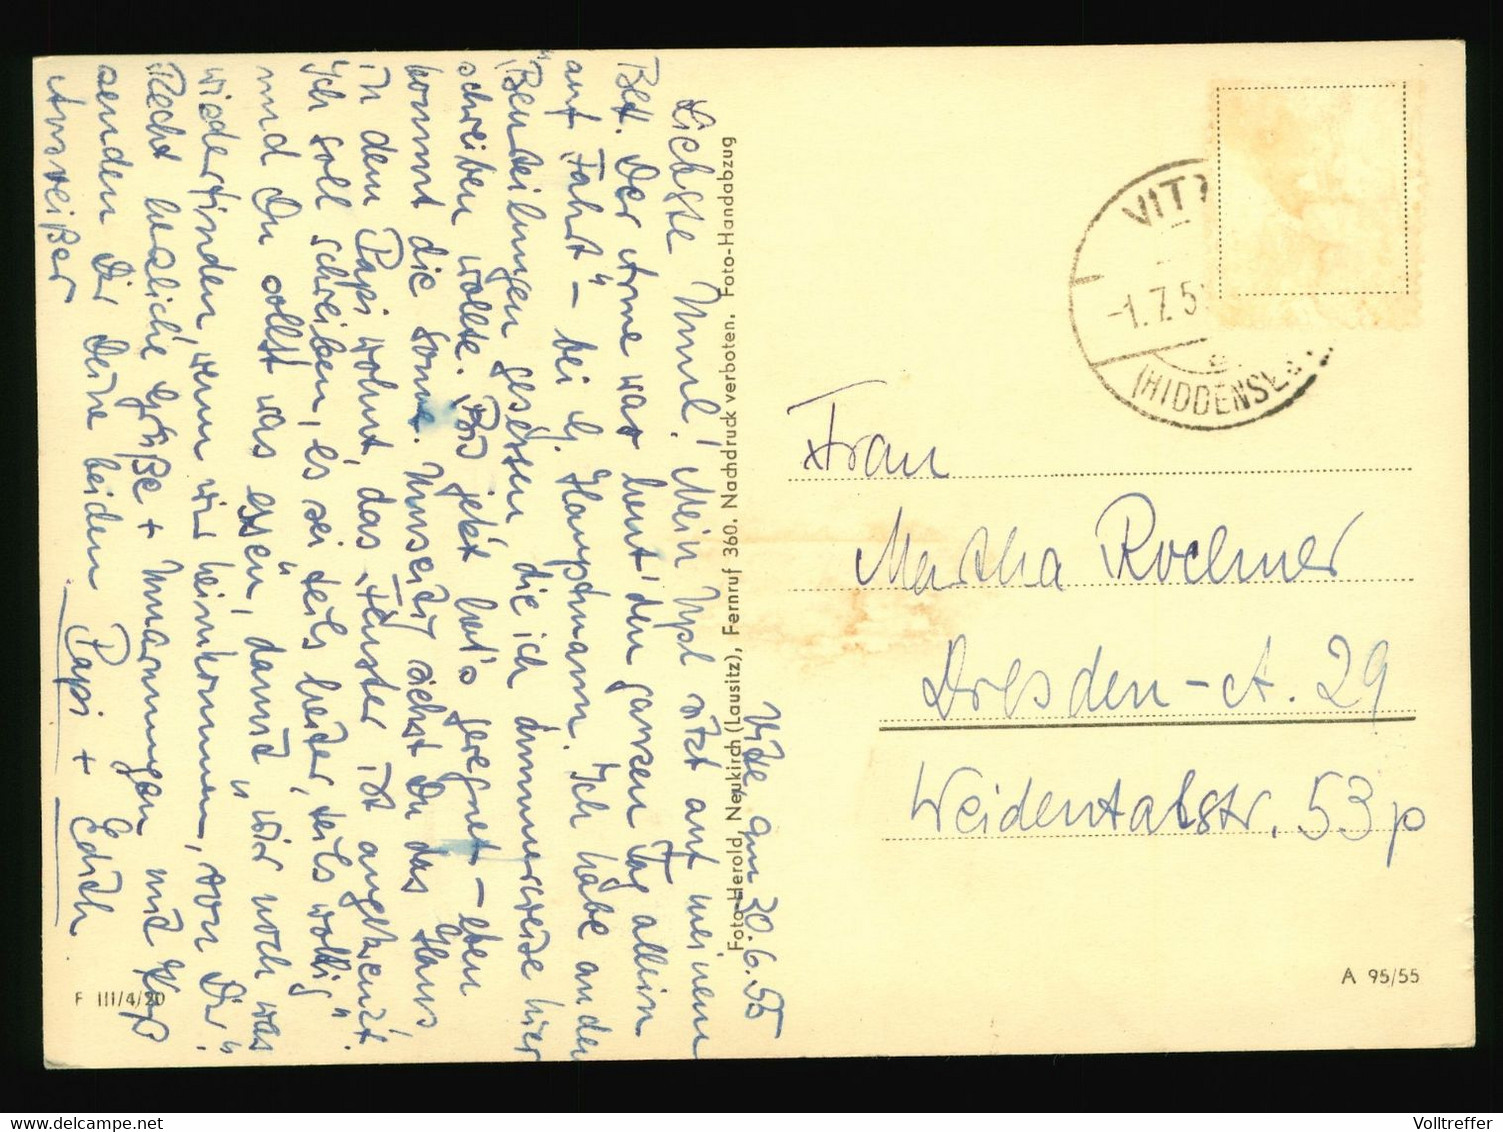 Vitte, am 30.6.55
Liebste Mml! Mein Mpl sitzt auf meinem
Bett. Der Arme war heut' den ganzen Tag allein
auf "Fahrt" – bei G. Hauptmann. Ich habe an den
"Beurteilungen" gesessen, die ich dummerweise hier
schreiben wollte. Bis jetzt hat's geregnet – eben
kommt die Sonne. Umseitig siehst Du das Haus
in dem Papi wohnt, das Fenster ist angekreuzt.
Ich soll schreiben, es sei teils heiter, teils wolkig"
und Du sollst was essen, damit wir noch was
wiederfinden, wenn wir heimkommen, von Dir."
Recht herzliche Grüße + Umarmungen mit Kuß
senden Dir Deine beiden Papi + Edith
Ausreißer
Foto-Herold, Neukirch (Lausitz), Fernruf 360. Nachdruck verboten. Foto-Handabzug
F III/4/20
VITT
-1.7.5
(HIDDENSEE
Frau
Martha Roehmer
Dresden-A. 29
Weidentalstr. 53p
A 95/55
Volltreffer